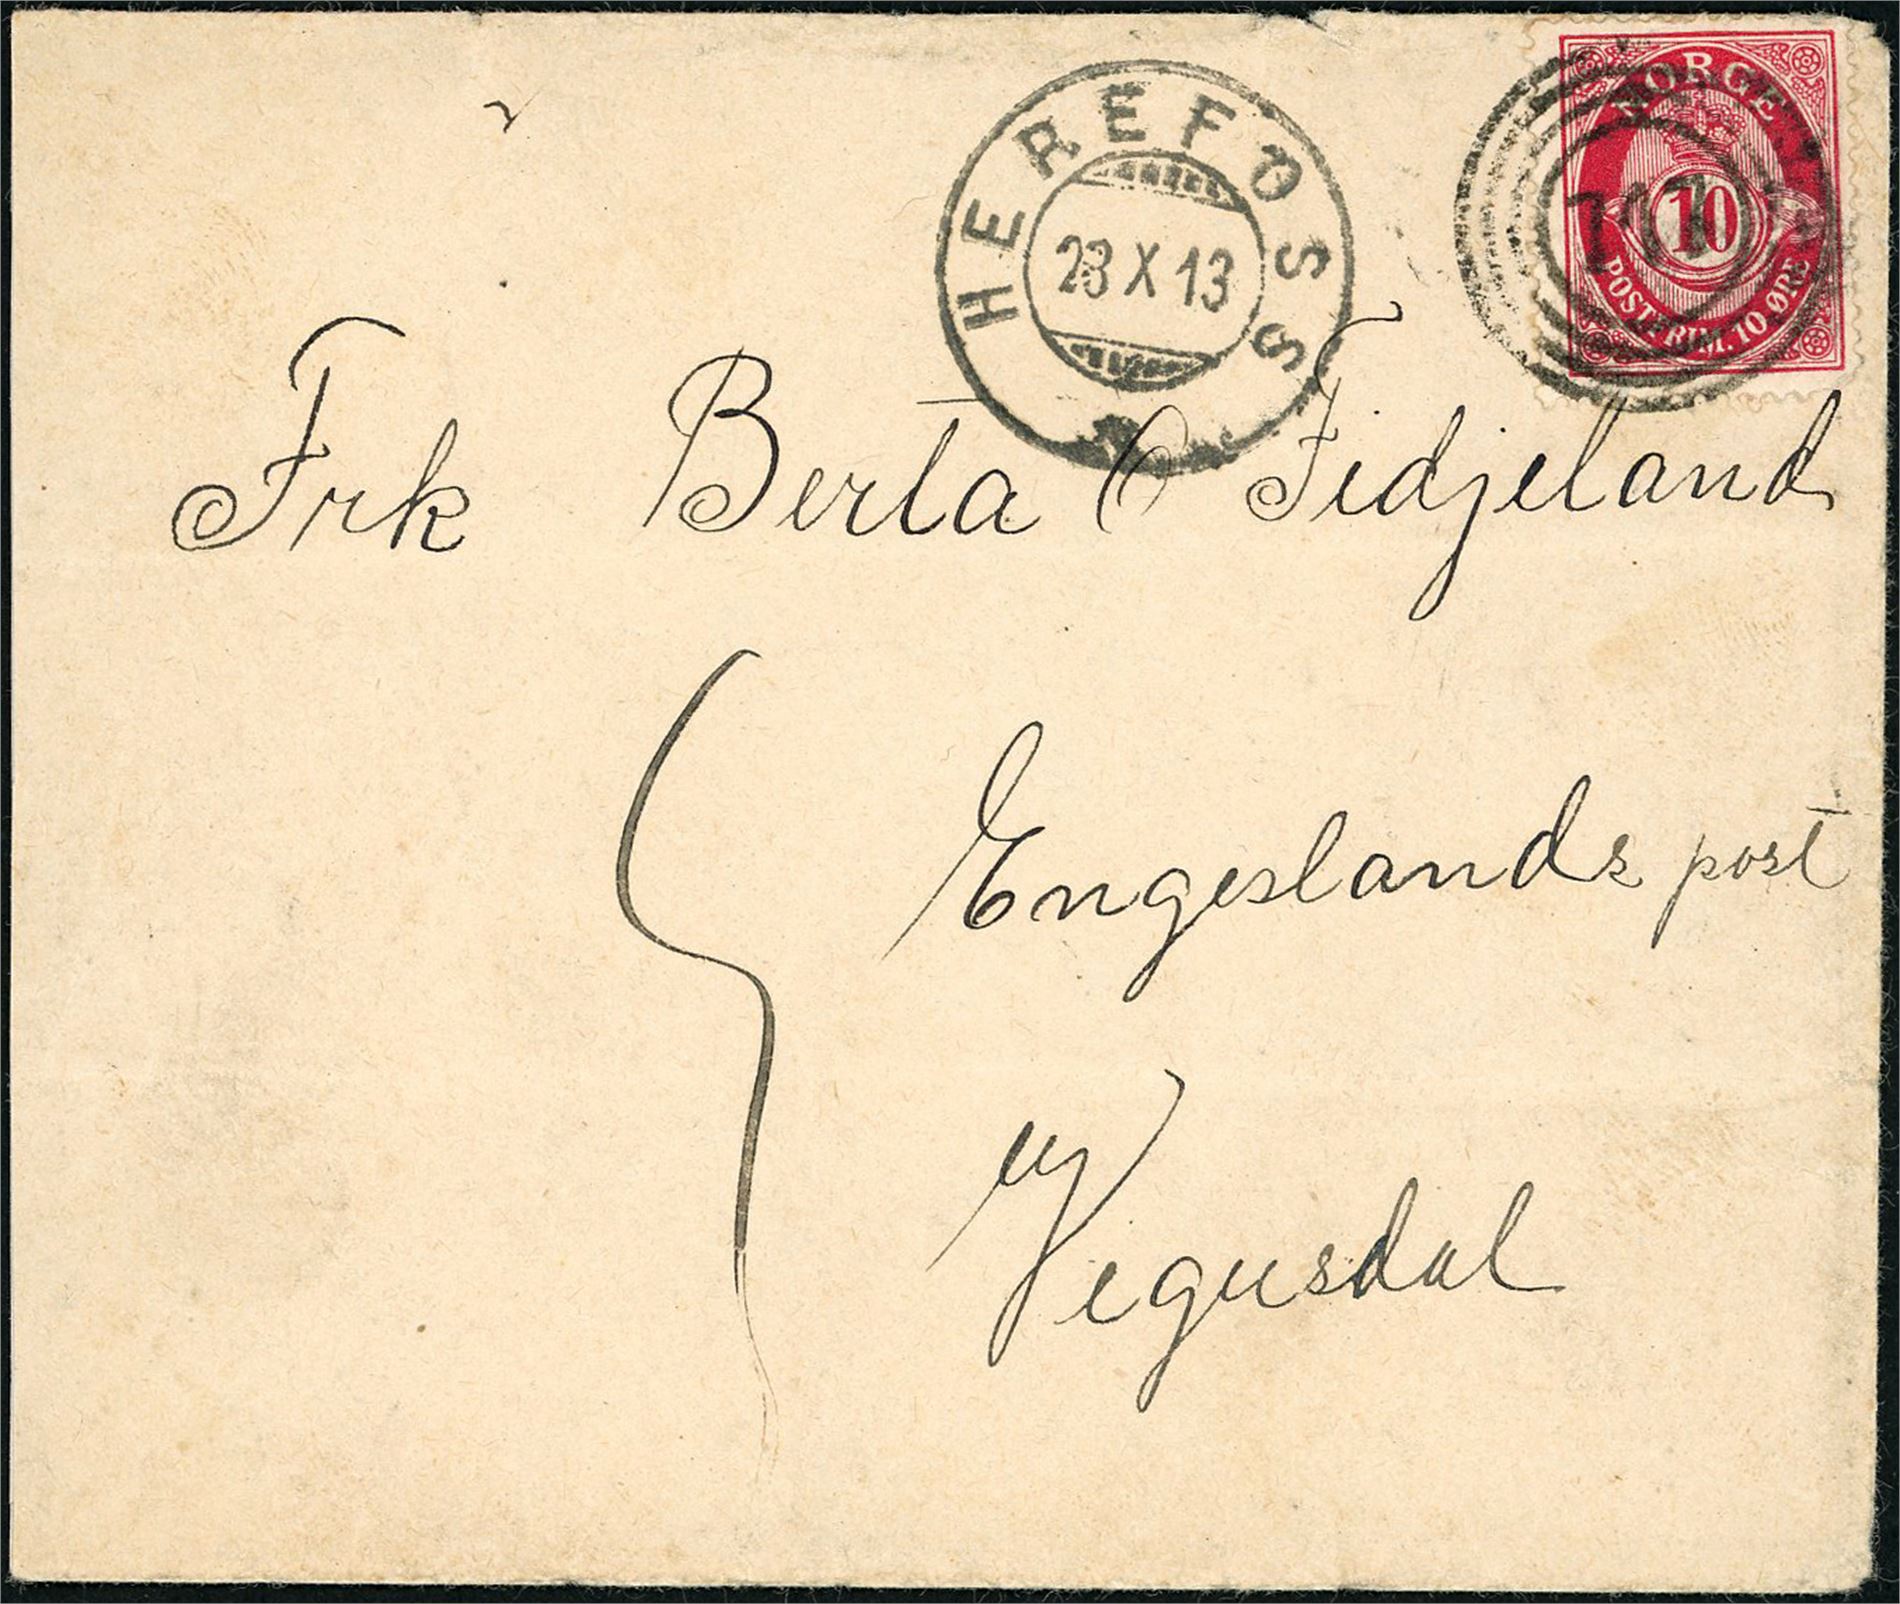 NORGE
10
POSTFRIM. 10 ØRE
HEREFOSS
23 X 13
Frk Berta O Fidjeland
Engeslands post
Vegusdal